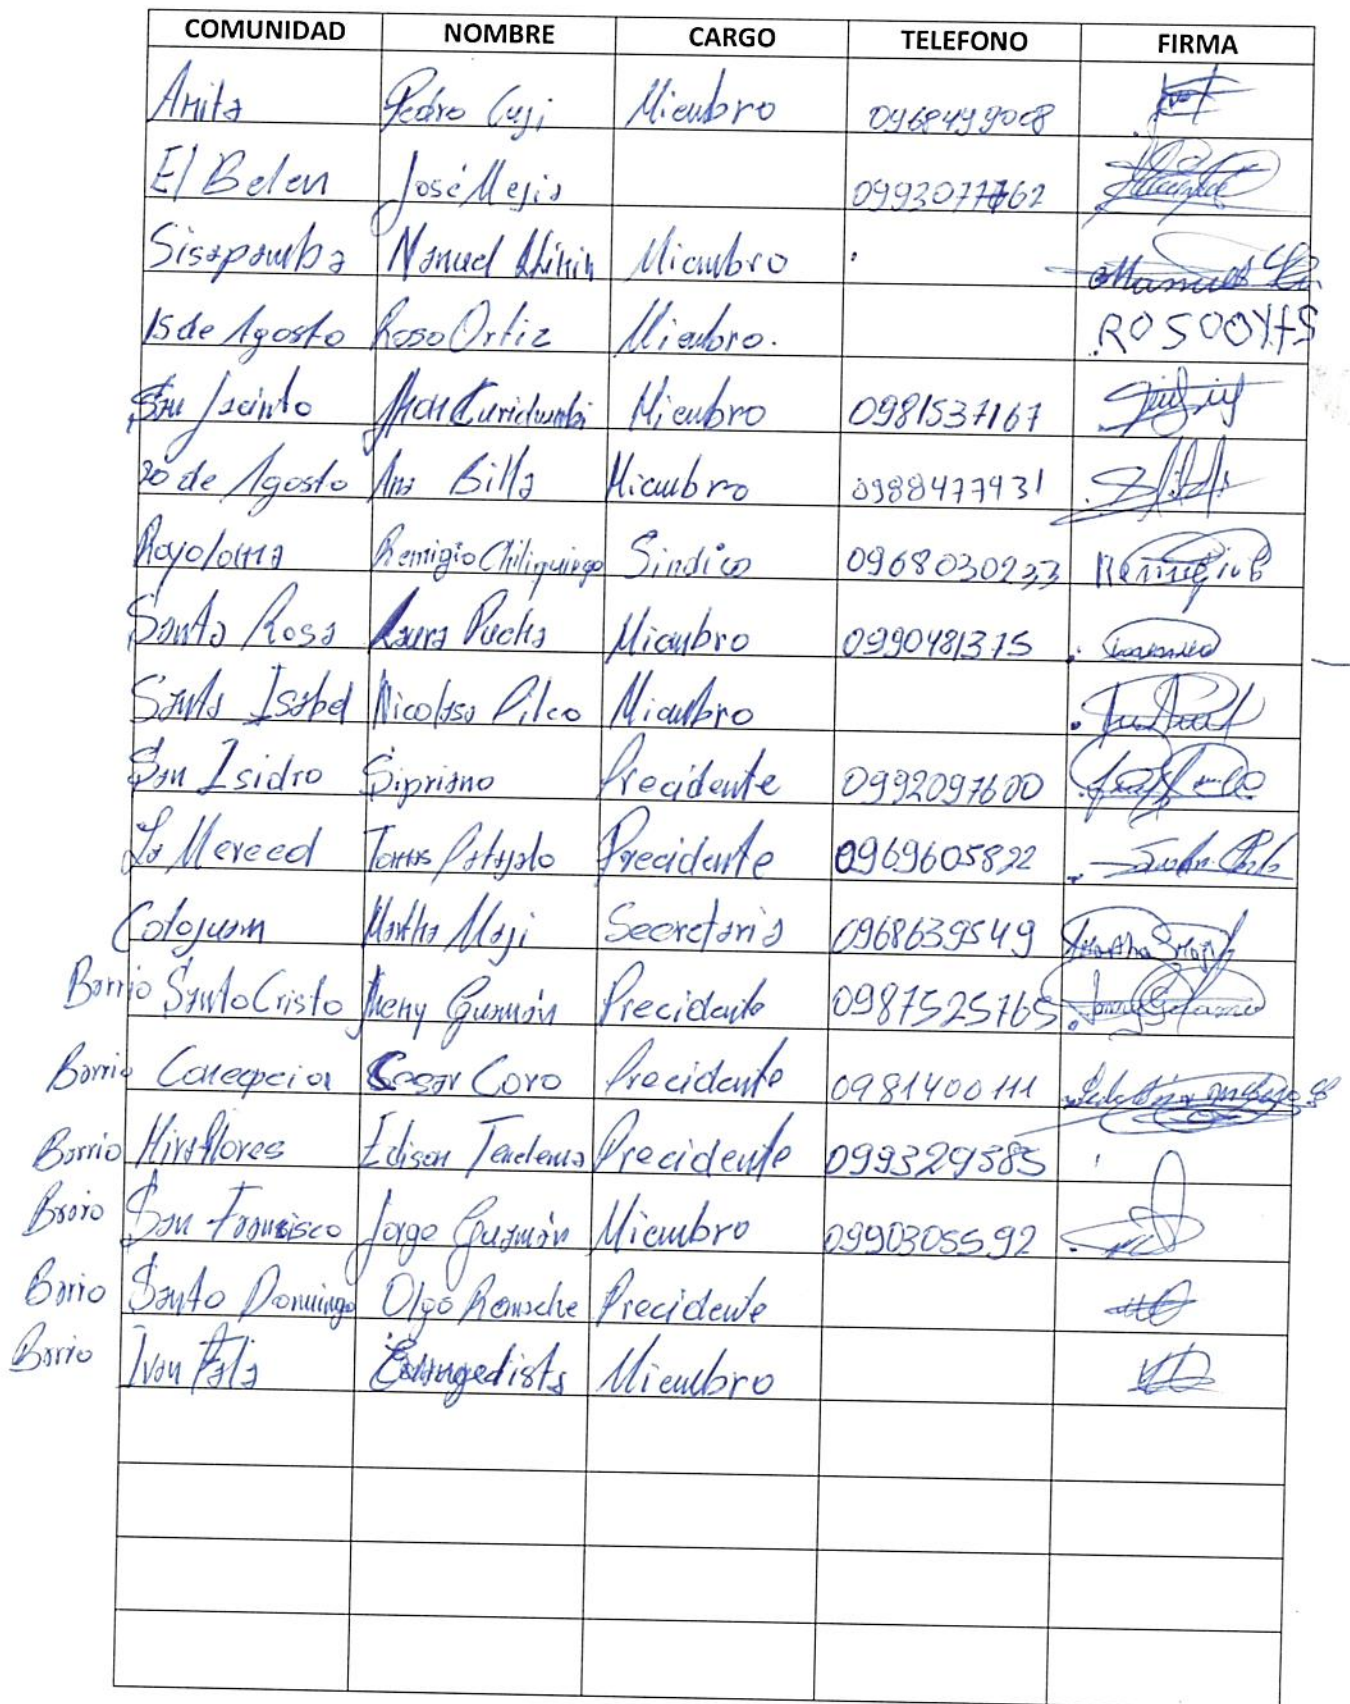 COMUNIDAD NOMBRE CARGO TELEFONO FIRMA
Anita Pedro Cuji Miembro 0968499008
El Belen José Mejia 0993077762
Sisapamba Manuel Miembro
15 de Agosto Rosa Ortiz Miembro.
San Jacinto Miembro 0981537167
20 de Agosto Ana Billa Miembro 0988477931
Rayoloma Remigio Chiliquinga Sindico 0968030233
Santa Rosa Laura Pucha Miembro 0990481375
Santa Isabel Nicolasa Pilco Miembro
San Isidro Sipriano Precidente 0992097600
La Merced Precidente 0969605822
Cotojuan Martha Maji Secretaria 0968639549
Barrio Santo Cristo Jheny Guzmán Precidente 0987525765
Barrio Concepcion Cesar Coro Precidente 0981400111
Barrio Miraflores Edison Tendema Precidente 099329585
Barrio San Francisco Jorge Guzmán Miembro 0990305592
Barrio Santo Domingo Olga Precidente
Barrio Miembro